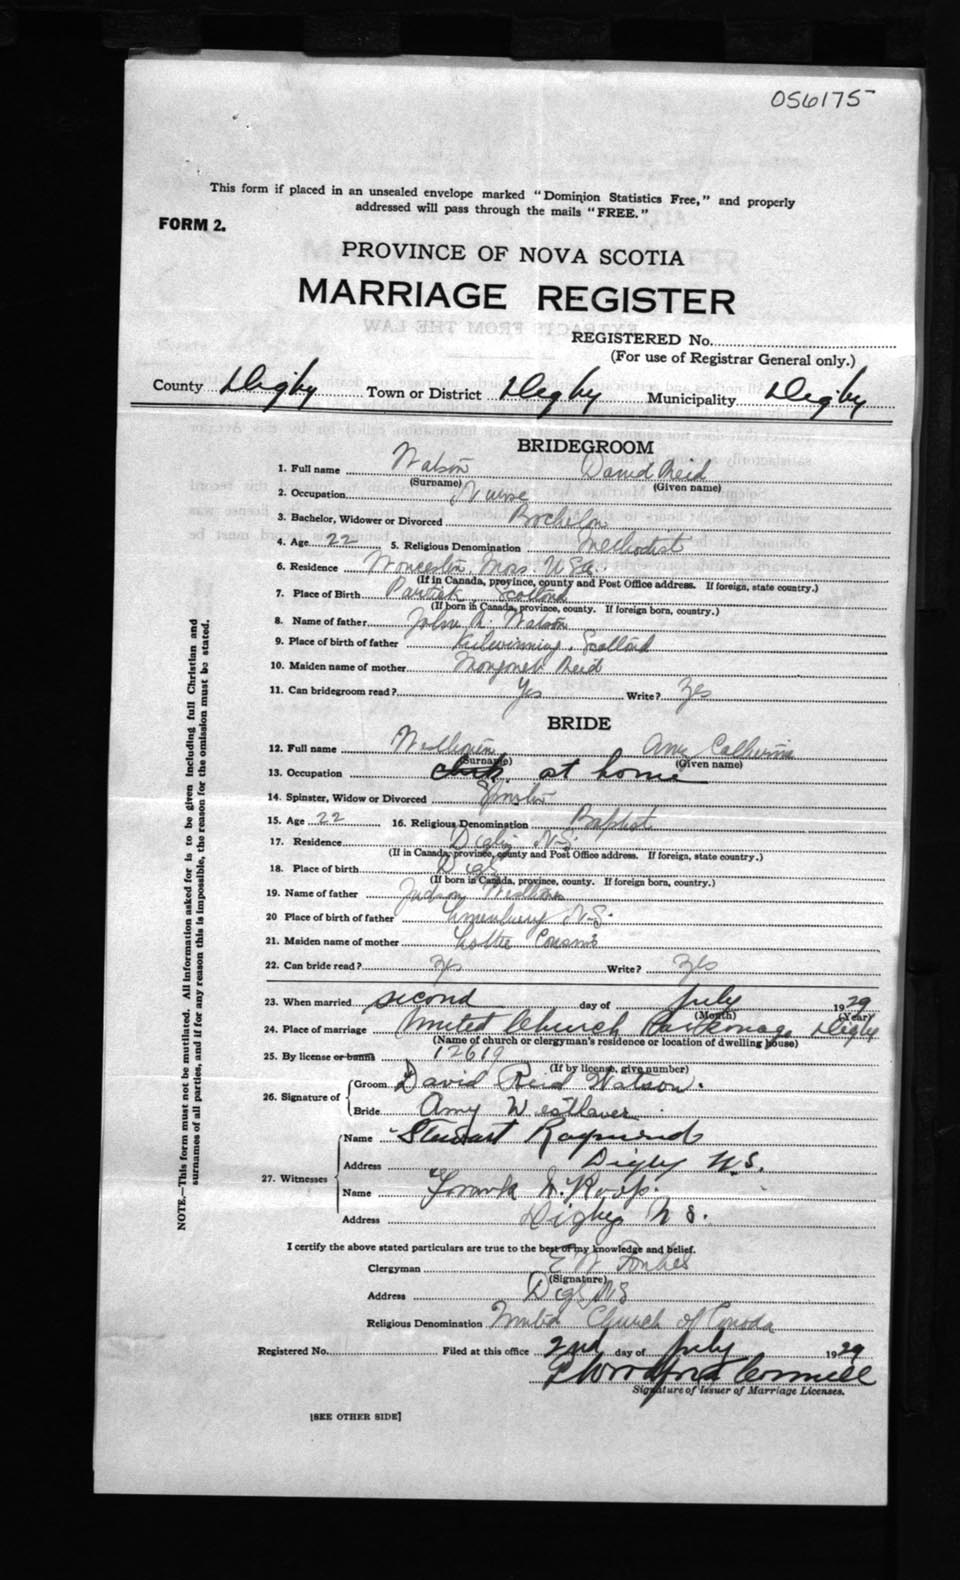 056175
This form if placed in an unsealed envelope marked "Dominion Statistics Free," and properly
addressed will pass through the mails "FREE."
FORM 2.
PROVINCE OF NOVA SCOTIA
MARRIAGE REGISTER
REGISTERED No.
(For use of Registrar General only.)
County Digby Town or District Digby Municipality Digby
BRIDEGROOM
1. Full name Watson David Reid
(Surname) (Given name)
2. Occupation Nurse
3. Bachelor, Widower or Divorced Bachelor
4. Age 22 5. Religious Denomination Methodist
6. Residence Worcester, Mass. U.S.A.
(If in Canada, province, county and Post Office address. If foreign, state country.)
7. Place of Birth Partick, Scotland
(If born in Canada, province, county. If foreign born, country.)
8. Name of father John Watson
9. Place of birth of father Kilwinning, Scotland
10. Maiden name of mother Margaret Reid
11. Can bridegroom read? Yes Write? Yes
BRIDE
12. Full name Westhaver Amy Catherine
(Surname) (Given name)
13. Occupation at home
14. Spinster, Widow or Divorced Spinster
15. Age 22 16. Religious Denomination Baptist
17. Residence Digby N.S.
(If in Canada, province, county and Post Office address. If foreign, state country.)
18. Place of birth Digby
(If born in Canada, province, county. If foreign born, country.)
19. Name of father Judson Westhaver
20 Place of birth of father Lunenburg N.S.
21. Maiden name of mother Lottie Cousins
22. Can bride read? Yes Write? Yes
23. When married second day of July 1929
(Month) (Year)
24. Place of marriage United Church Parsonage Digby
(Name of church or clergyman's residence or location of dwelling house)
25. By license or banns 12619
(If by license, give number)
26. Signature of Groom David Reid Watson.
Bride Amy Westhaver
27. Witnesses Name Stewart Raymond
Address Digby N.S.
Name Frank Roop.
Address Digby N S.
I certify the above stated particulars are true to the best of my knowledge and belief.
Clergyman E W Forbes
(Signature)
Address Digby NS
Religious Denomination United Church of Canada
Registered No. Filed at this office 2nd day of July 1929
Signature of Issuer of Marriage Licenses.
[SEE OTHER SIDE]
NOTE.—This form must not be mutilated. All information asked for is to be given including full Christian and
surnames of all parties, and if for any reason this is impossible, the reason for the omission must be stated.